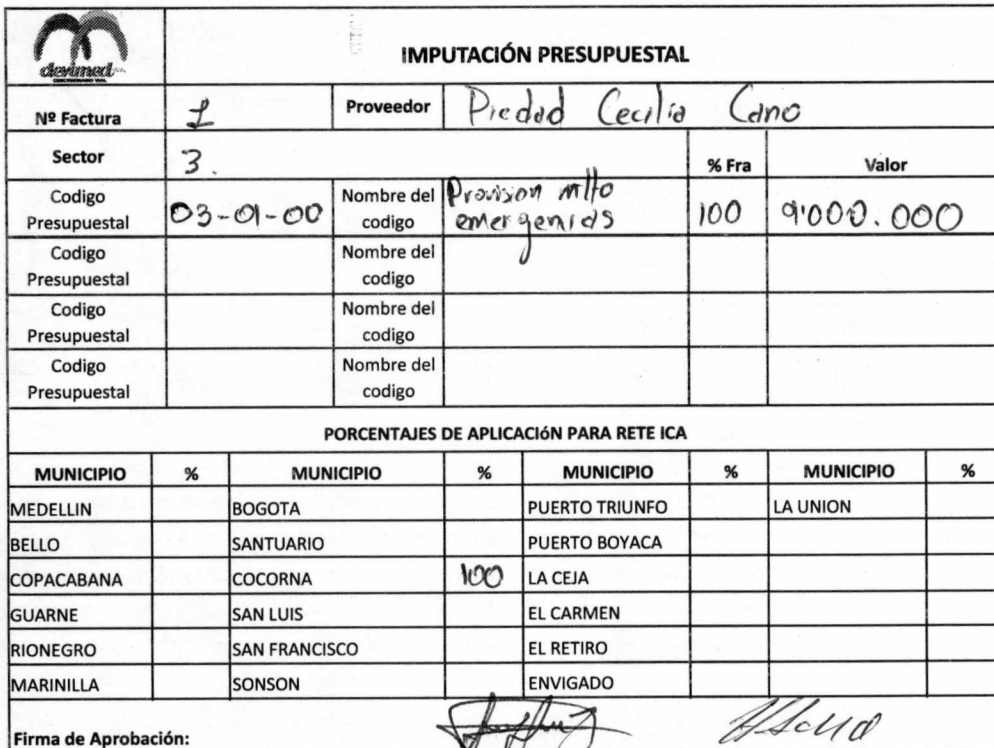 devimed
CONCESIONARIO VIAL
IMPUTACIÓN PRESUPUESTAL
Nº Factura 1 Proveedor Piedad Cecilia Cano
Sector 3. % Fra Valor
Codigo Presupuestal 03-01-00 Nombre del codigo Provision mtto emergenias 100 9'000.000
Codigo Presupuestal Nombre del codigo
Codigo Presupuestal Nombre del codigo
Codigo Presupuestal Nombre del codigo
PORCENTAJES DE APLICACIÓN PARA RETE ICA
MUNICIPIO % MUNICIPIO % MUNICIPIO % MUNICIPIO %
MEDELLIN BOGOTA PUERTO TRIUNFO LA UNION
BELLO SANTUARIO PUERTO BOYACA
COPACABANA COCORNA 100 LA CEJA
GUARNE SAN LUIS EL CARMEN
RIONEGRO SAN FRANCISCO EL RETIRO
MARINILLA SONSON ENVIGADO
Firma de Aprobación: